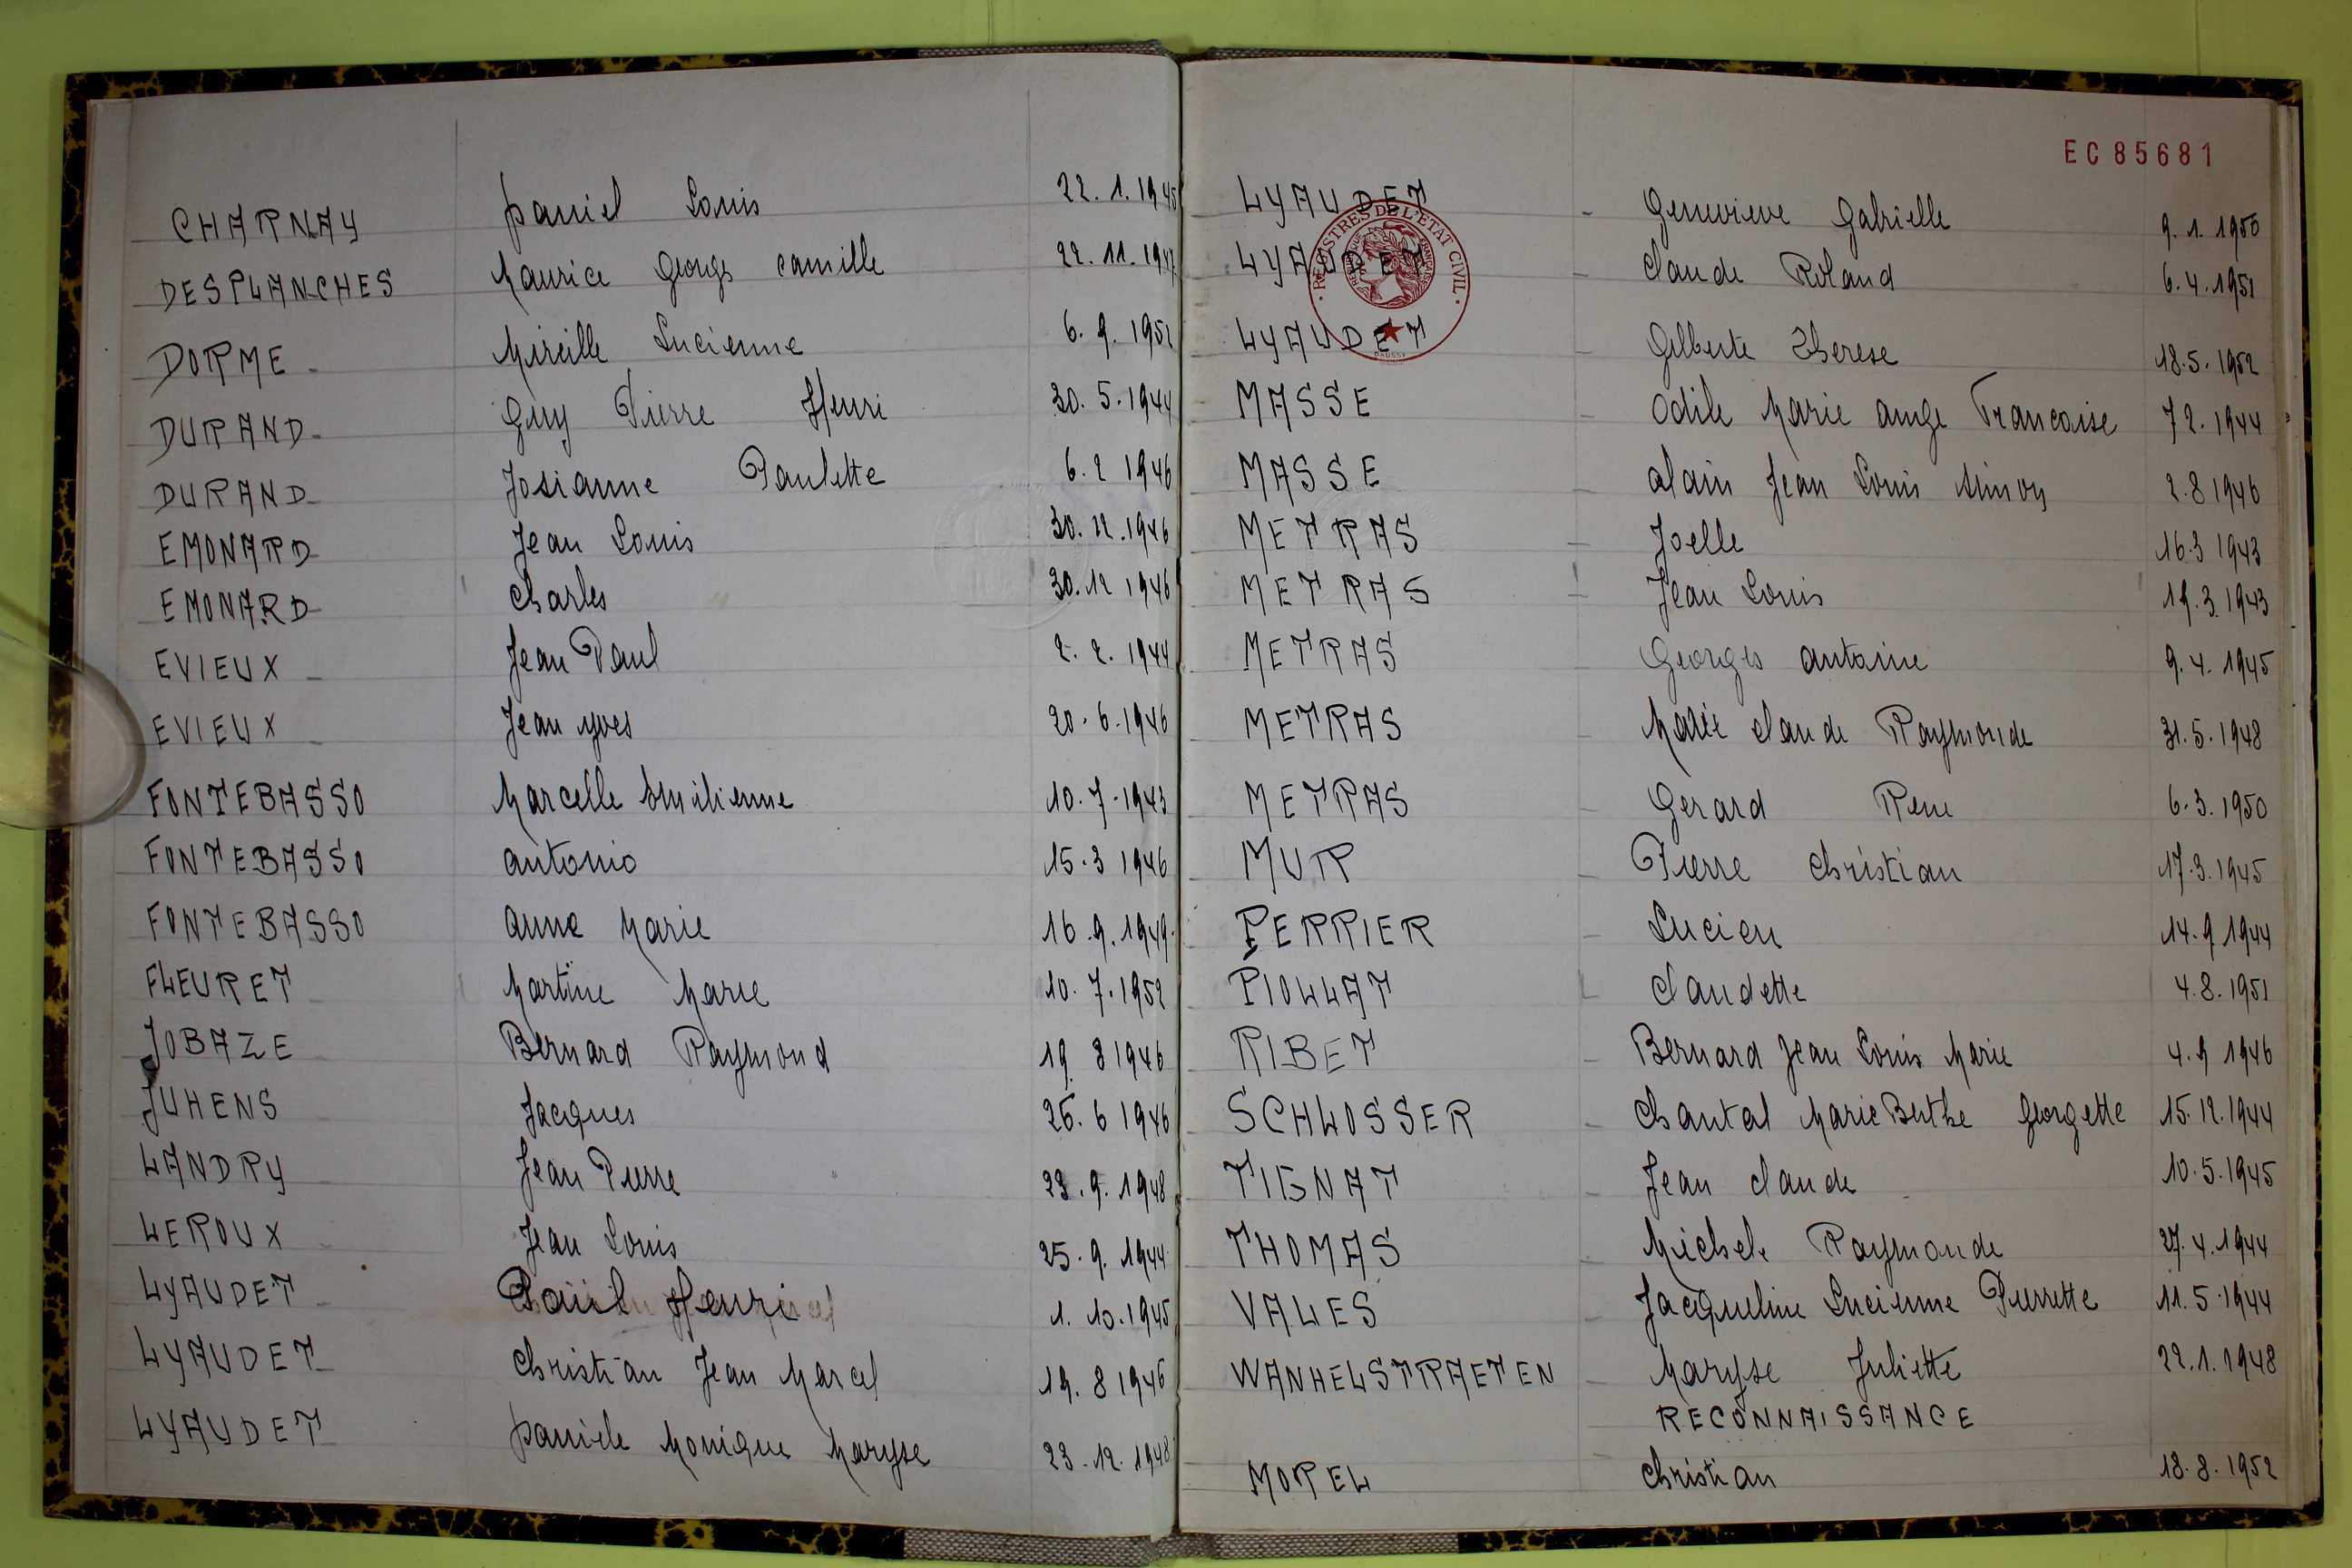 CHARNAY Daniel Louis 22.1.1945
DESPLANCHES Maurice Georges Camille 22.11.1947
DORME - Mireille Lucienne 6.9.1952
DURAND - Guy Pierre Henri 30.5.1944
DURAND - Josianne Paulette 6.2 1946
EMONARD - Jean Louis 30.12.1946
EMONARD - Charles 30.12 1946
EVIEUX - Jean Paul 2.2.1944
EVIEUX - Jean Yves 20.6.1946
FONTEBASSO Marcelle Emilienne 10.7.1943
FONTEBASSO Antonio 15.3 1946
FONTEBASSO Anne Marie 16.9.1949
FLEURET Martine Marie 10.7.1952
JOBAZE Bernard Raymond 19.8 1946
JUHENS Jacques 26.6 1946
LANDRY Jean Pierre 23.9.1948
LEROUX Jean Louis 25.9.1944
LYAUDET Paul Henri 1.10.1945
LYAUDET Christian Jean Marcel 19.8 1946
LYAUDET Daniele Monique Maryse 23.12.1948
EC 85681
LYAUDET - Genevieve Gabrielle 9.1.1950
LYAUDET - Claude Roland 6.4.1951
LYAUDET - Gilberte Therese 18.5.1952
REGISTRES DE L'ETAT CIVIL
MASSE - Odile Marie Ange Francoise 7 2.1944
MASSE - Alain Jean Louis Simon 2.8 1946
METRAS - Joelle 16.3 1943
METRAS - Jean Louis 19.3.1943
METRAS - Georges Antoine 9.4.1945
METRAS - Marie Claude Raymonde 31.5.1948
METRAS - Gerard Rene 6.3.1950
MUR - Pierre Christian 17.3.1945
PERRIER - Lucien 14.9 1944
PIOLLAT Claudette 4.8.1951
RIBET - Bernard Jean Louis Marie 4.9 1946
SCHLOSSER - Chantal Marie Berthe Georgette 15.12.1944
TIGNAT - Jean Claude 10.5.1945
THOMAS Michele Raymonde 27.4.1944
VALES - Jacqueline Lucienne Pierrette 11.5.1944
WANHELSTRAETEN - Maryse Juliette 22.1.1948
RECONNAISSANCE
MOREL Christian 18.8.1952